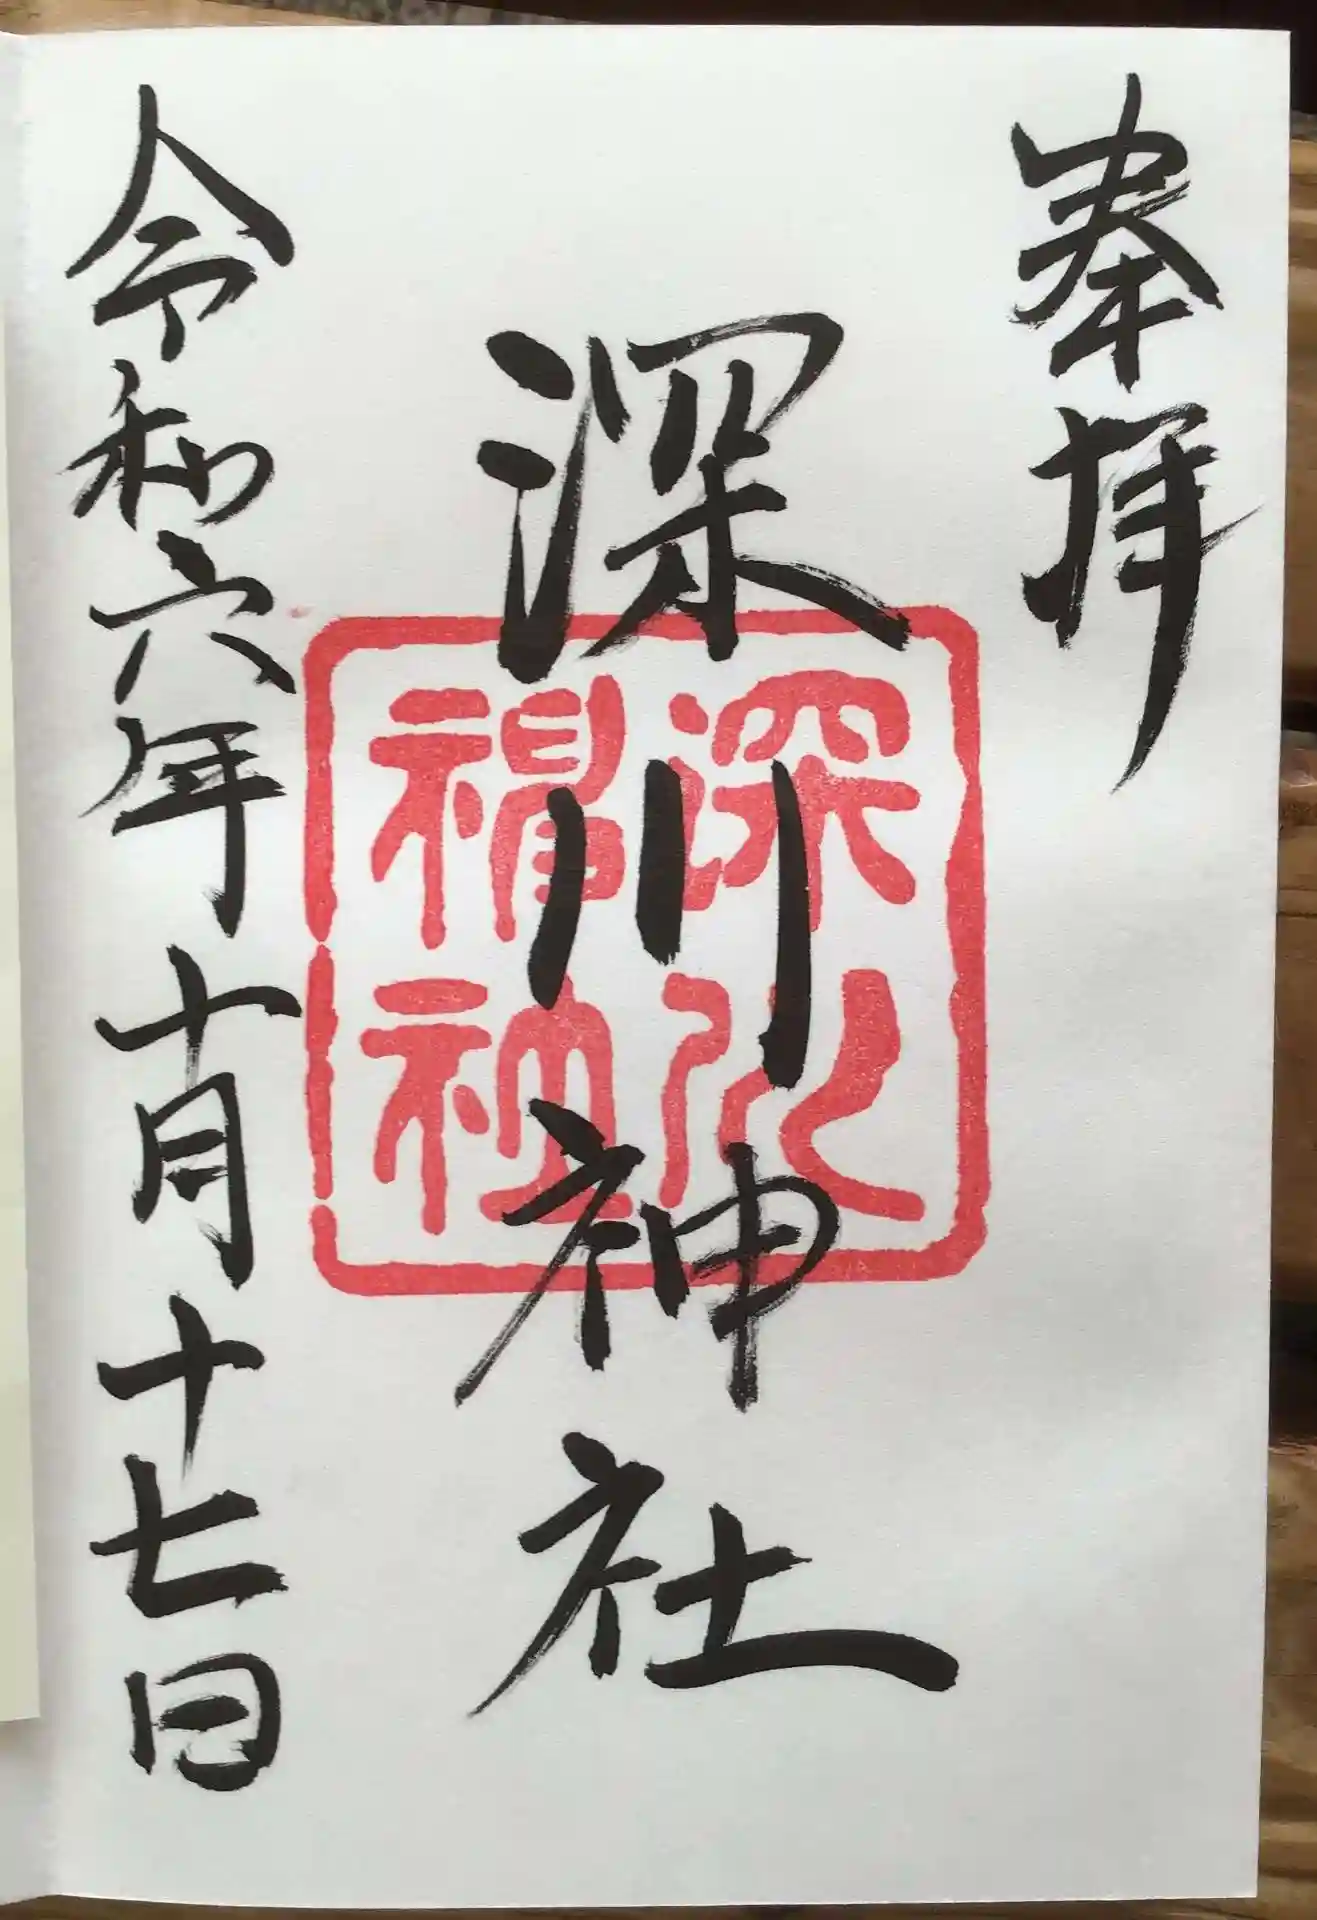 奉拝
深川神社
深川福社
令和六年十月十七日